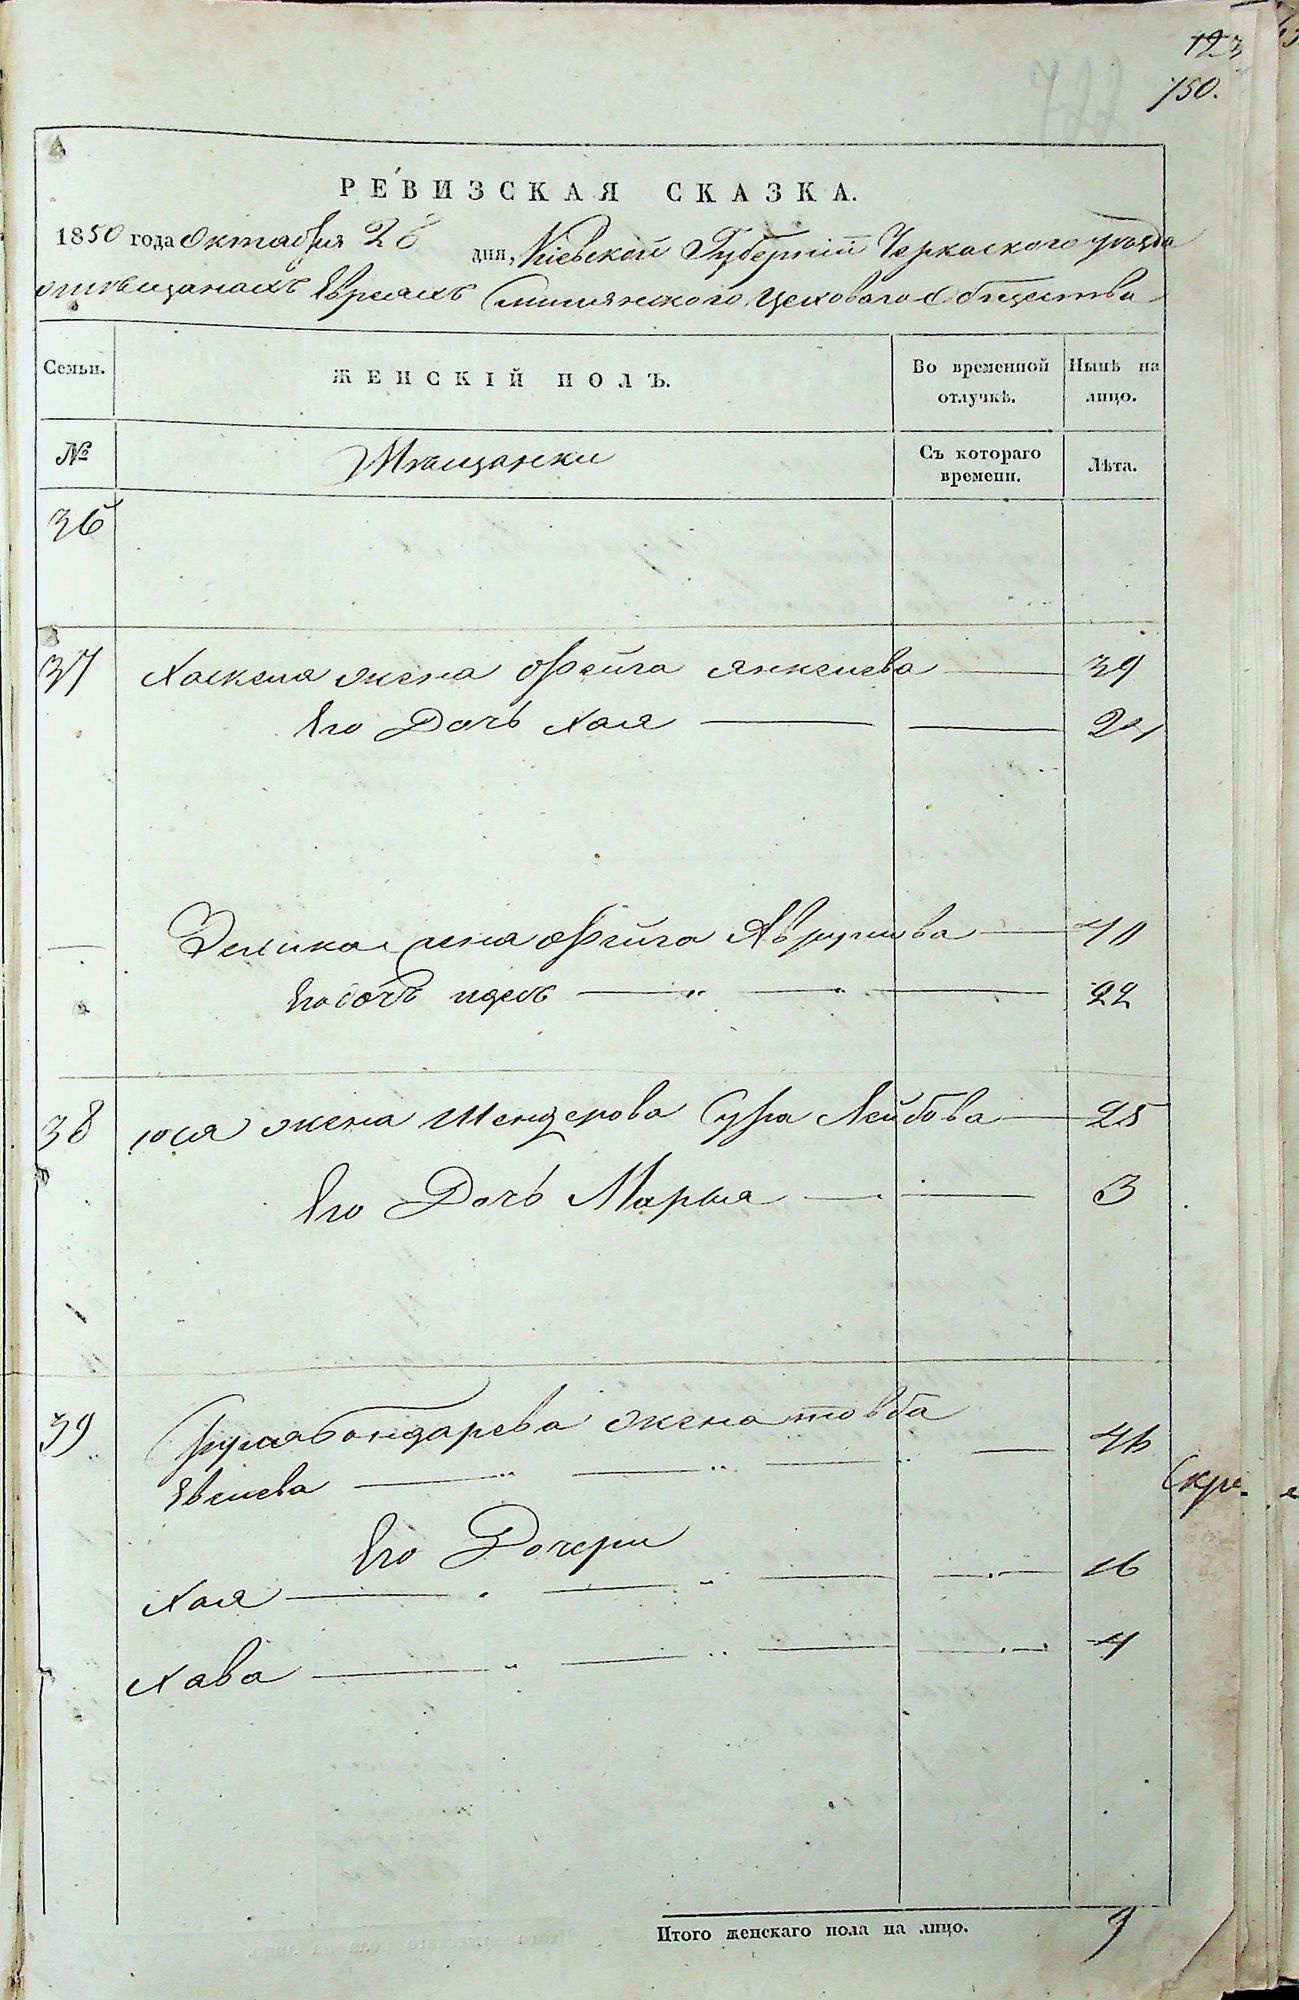 123
150.
РЕВИЗСКАЯ СКАЗКА.
1850 года Октября 28 дня, Кіевской Губерніи Черкаского уезда
о мещанахъ Евреяхъ Смилянского Цеховаго Общества
Семьи. ЖЕНСКІЙ ПОЛЪ. Во временной отлучкѣ. Нынѣ на лицо.
№ Мещанки Съ котораго времени. Лѣта.
36
37 Хаскеля жена Фейга Янкелева 39
Его Дочь Хая 21
жена Фейга 40
Его дочь 22
38 Юся жена Шендерова Сура Лейбова 25
Его Дочь Марья
3
39 Бондарева жена Товба 46
Его Дочери
Хая 16
Хава 4
Итого женскаго пола на лицо. 9